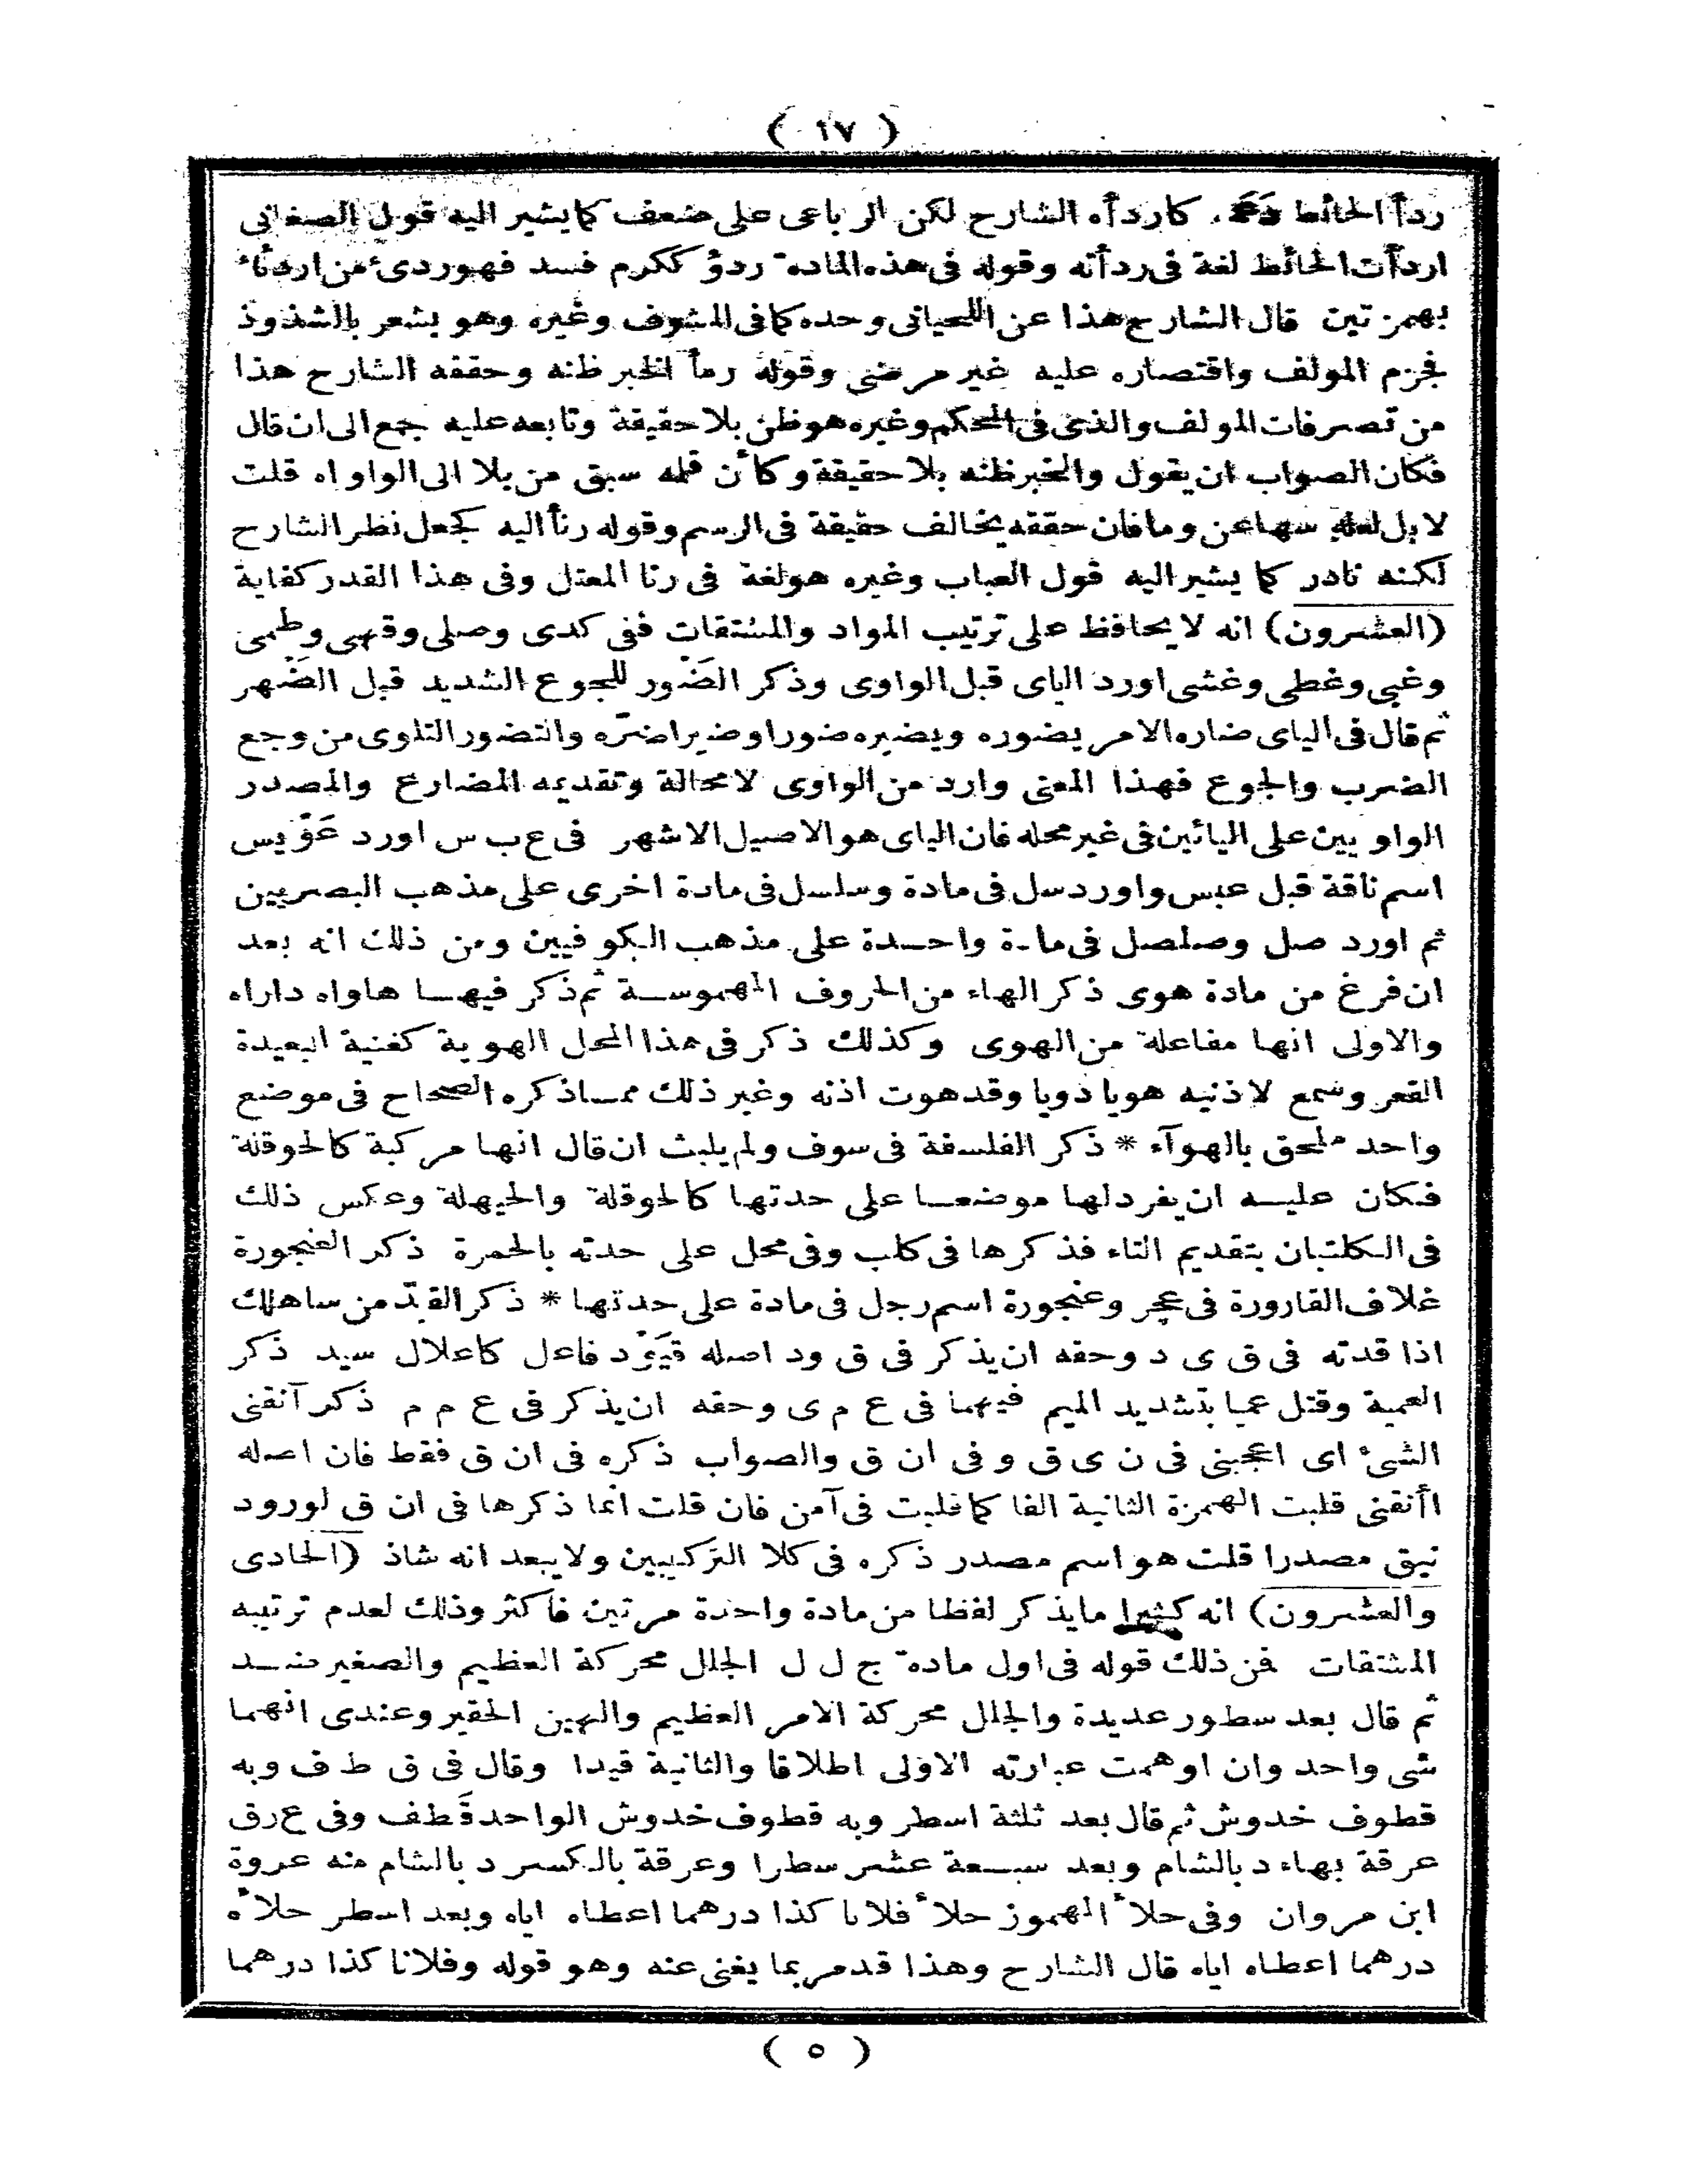 ( ١٧ )
ردأ الحائط دعمه كاردأه الشارح لكن الرباعى على ضعف كما يشير اليه قول الصغانى
اردأت الحائط لغة فى ردأته وقوله فى هذه المادة ردؤ ككرم فسد فهو ردئ من اردئاء
بهمزتين قال الشارح هذا عن اللحيانى وحده كما فى المشوف وغيره وهو يشعر بالشذوذ
فجزم المولف واقتصاره عليه غير مرضى وقوله رمأ الخبر ظنه وحققه الشارح هذا
من تصرفات المولف والذى فى المحكم وغيره هو ظن بلا حقيقة وتابعه عليه جمع الى ان قال
فكان الصواب ان يقول والخبر ظنه بلا حقيقة وكأن قلمه سبق من بلا الى الواو اه قلت
لا بل لعله سها عن وما فان حققه يخالف حقيقة فى الرسم وقوله رنأ اليه كجعل نظر الشارح
لكنه نادر كما يشير اليه قول العباب وغيره هو لغة فى رنا المعتل وفى هذا القدر كفاية
(العشرون) انه لا يحافظ على ترتيب المواد والمشتقات ففى كدى وصلى وقهى وطمى
وغبى وغطى وغشى اورد الياى قبل الواوى وذكر الضَور للجوع الشديد قبل الضَهر
ثم قال فى الياى ضاره الامر يضوره ويضيره ضورا وضيرا ضرّه والتضور التلوى من وجع
الضرب والجوع فهذا المعنى وارد من الواوى لا محالة وتقديمه المضارع والمصدر
الواويين على اليائين فى غير محله فان الياى هو الاصيل الاشهر فى ع ب س اورد عَوْ بس
اسم ناقة قبل عبس واورد سل فى مادة وسلسل فى مادة اخرى على مذهب البصريين
ثم اورد صل وصلصل فى مادة واحدة على مذهب الكوفيين ومن ذلك انه بعد
ان فرغ من مادة هوى ذكر الهاء من الحروف المهموسة ثم ذكر فيها هاواه داراه
والاولى انها مفاعلة من الهوى وكذلك ذكر فى هذا المحل الهوية كغنية البعيدة
القعر وسمع لاذنيه هويا دويا وقد هوت اذنه وغير ذلك مما ذكره الصحاح فى موضع
واحد ملحق بالهوآء * ذكر الفلسفة فى سوف ولم يلبث ان قال انها مركبة كالحوقلة
فكان عليه ان يفرد لها موضعا على حدتها كالحوقلة والحيهلة وعكس ذلك
فى الكلتبان بتقديم التاء فذكرها فى كلب وفى محل على حدته بالحمرة ذكر العنجورة
غلاف القارورة فى عجر وعنجورة اسم رجل فى مادة على حدتها * ذكر القيّد من ساهلك
اذا قدته فى ق ى د وحقه ان يذكر فى ق ود اصله قَيْوِد فاعل كاعلال سيد ذكر
العمية وقتل عميا بتشديد الميم فيهما فى ع م ى وحقه ان يذكر فى ع م م ذكر آنقنى
الشئ اى اعجبنى فى ن ى ق و فى ان ق والصواب ذكره فى ان ق فقط فان اصله
اأنقنى قلبت الهمزة الثانية الفا كما قلبت فى آمن فان قلت انما ذكرها فى ان ق لورود
نيق مصدرا قلت هو اسم مصدر ذكره فى كلا التركيبين ولا يبعد انه شاذ (الحادى
والعشرون) انه كثيرا ما يذكر لفظا من مادة واحدة مرتين فاكثر وذلك لعدم ترتيبه
المشتقات فمن ذلك قوله فى اول مادة ج ل ل الجلل محركة العظيم والصغير ضد
ثم قال بعد سطور عديدة والجلل محركة الامر العظيم والهين الحقير وعندى انهما
شى واحد وان اوهمت عبارته الاولى اطلاقا والثانية قيدا وقال فى ق ط ف وبه
قطوف خدوش ثم قال بعد ثلثة اسطر وبه قطوف خدوش الواحد قَطف وفى ع رق
عرقة بهاء د بالشام وبعد سبعة عشر سطرا وعرقة بالكسر د بالشام منه عروة
ابن مروان وفى حلأ المهموز حلأ فلانا كذا درهما اعطاه اياه وبعد اسطر حلأه
درهما اعطاه اياه قال الشارح وهذا قد مر بما يغنى عنه وهو قوله وفلانا كذا درهما
( ٥ )